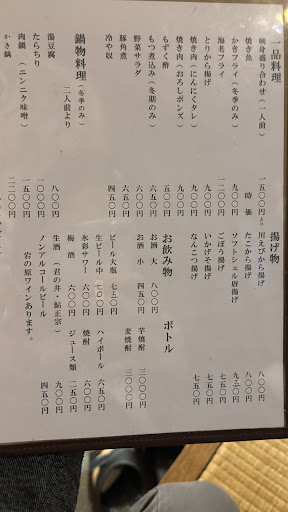 一品料理
刺身盛り合わせ（一人前） 一五〇〇円より
焼き魚 時価
かきフライ（冬季のみ） 九〇〇円
海老フライ 一二〇〇円
とりから揚げ 九〇〇円
焼き肉（にんにくタレ） 九〇〇円
焼き肉（おろしポンズ） 九〇〇円
もずく酢
もつ煮込み（冬期のみ） 六五〇円
野菜サラダ 六〇〇円
豚角煮 六五〇円
冷や奴 四五〇円
鍋物料理（冬季のみ）
二人前より
湯豆腐 八〇〇円
たらちり 一〇〇〇円
肉鍋（ニンニク味噌） 一五〇〇円
かき鍋
揚げ物
川えびから揚げ 八〇〇円
たこから揚げ 八〇〇円
ソフトシェル唐揚げ 九五〇円
ごぼう揚げ 七五〇円
いかげそ揚げ 七五〇円
なんこつ揚げ 七五〇円
お飲み物
お酒 大 八〇〇円
お酒 小 四五〇円
ビール大瓶 七五〇円
生ビール中 七〇〇円
氷彩サワー 六〇〇円
梅酒 六〇〇円
生酒（君の井・鮎正宗） 九〇〇円
ノンアルコールビール 四五〇円
岩の原ワインあります。
ボトル
芋焼酎 三〇〇〇円
麦焼酎 三〇〇〇円
ハイボール 六五〇円
焼酎 六〇〇円
ジュース類 二五〇円